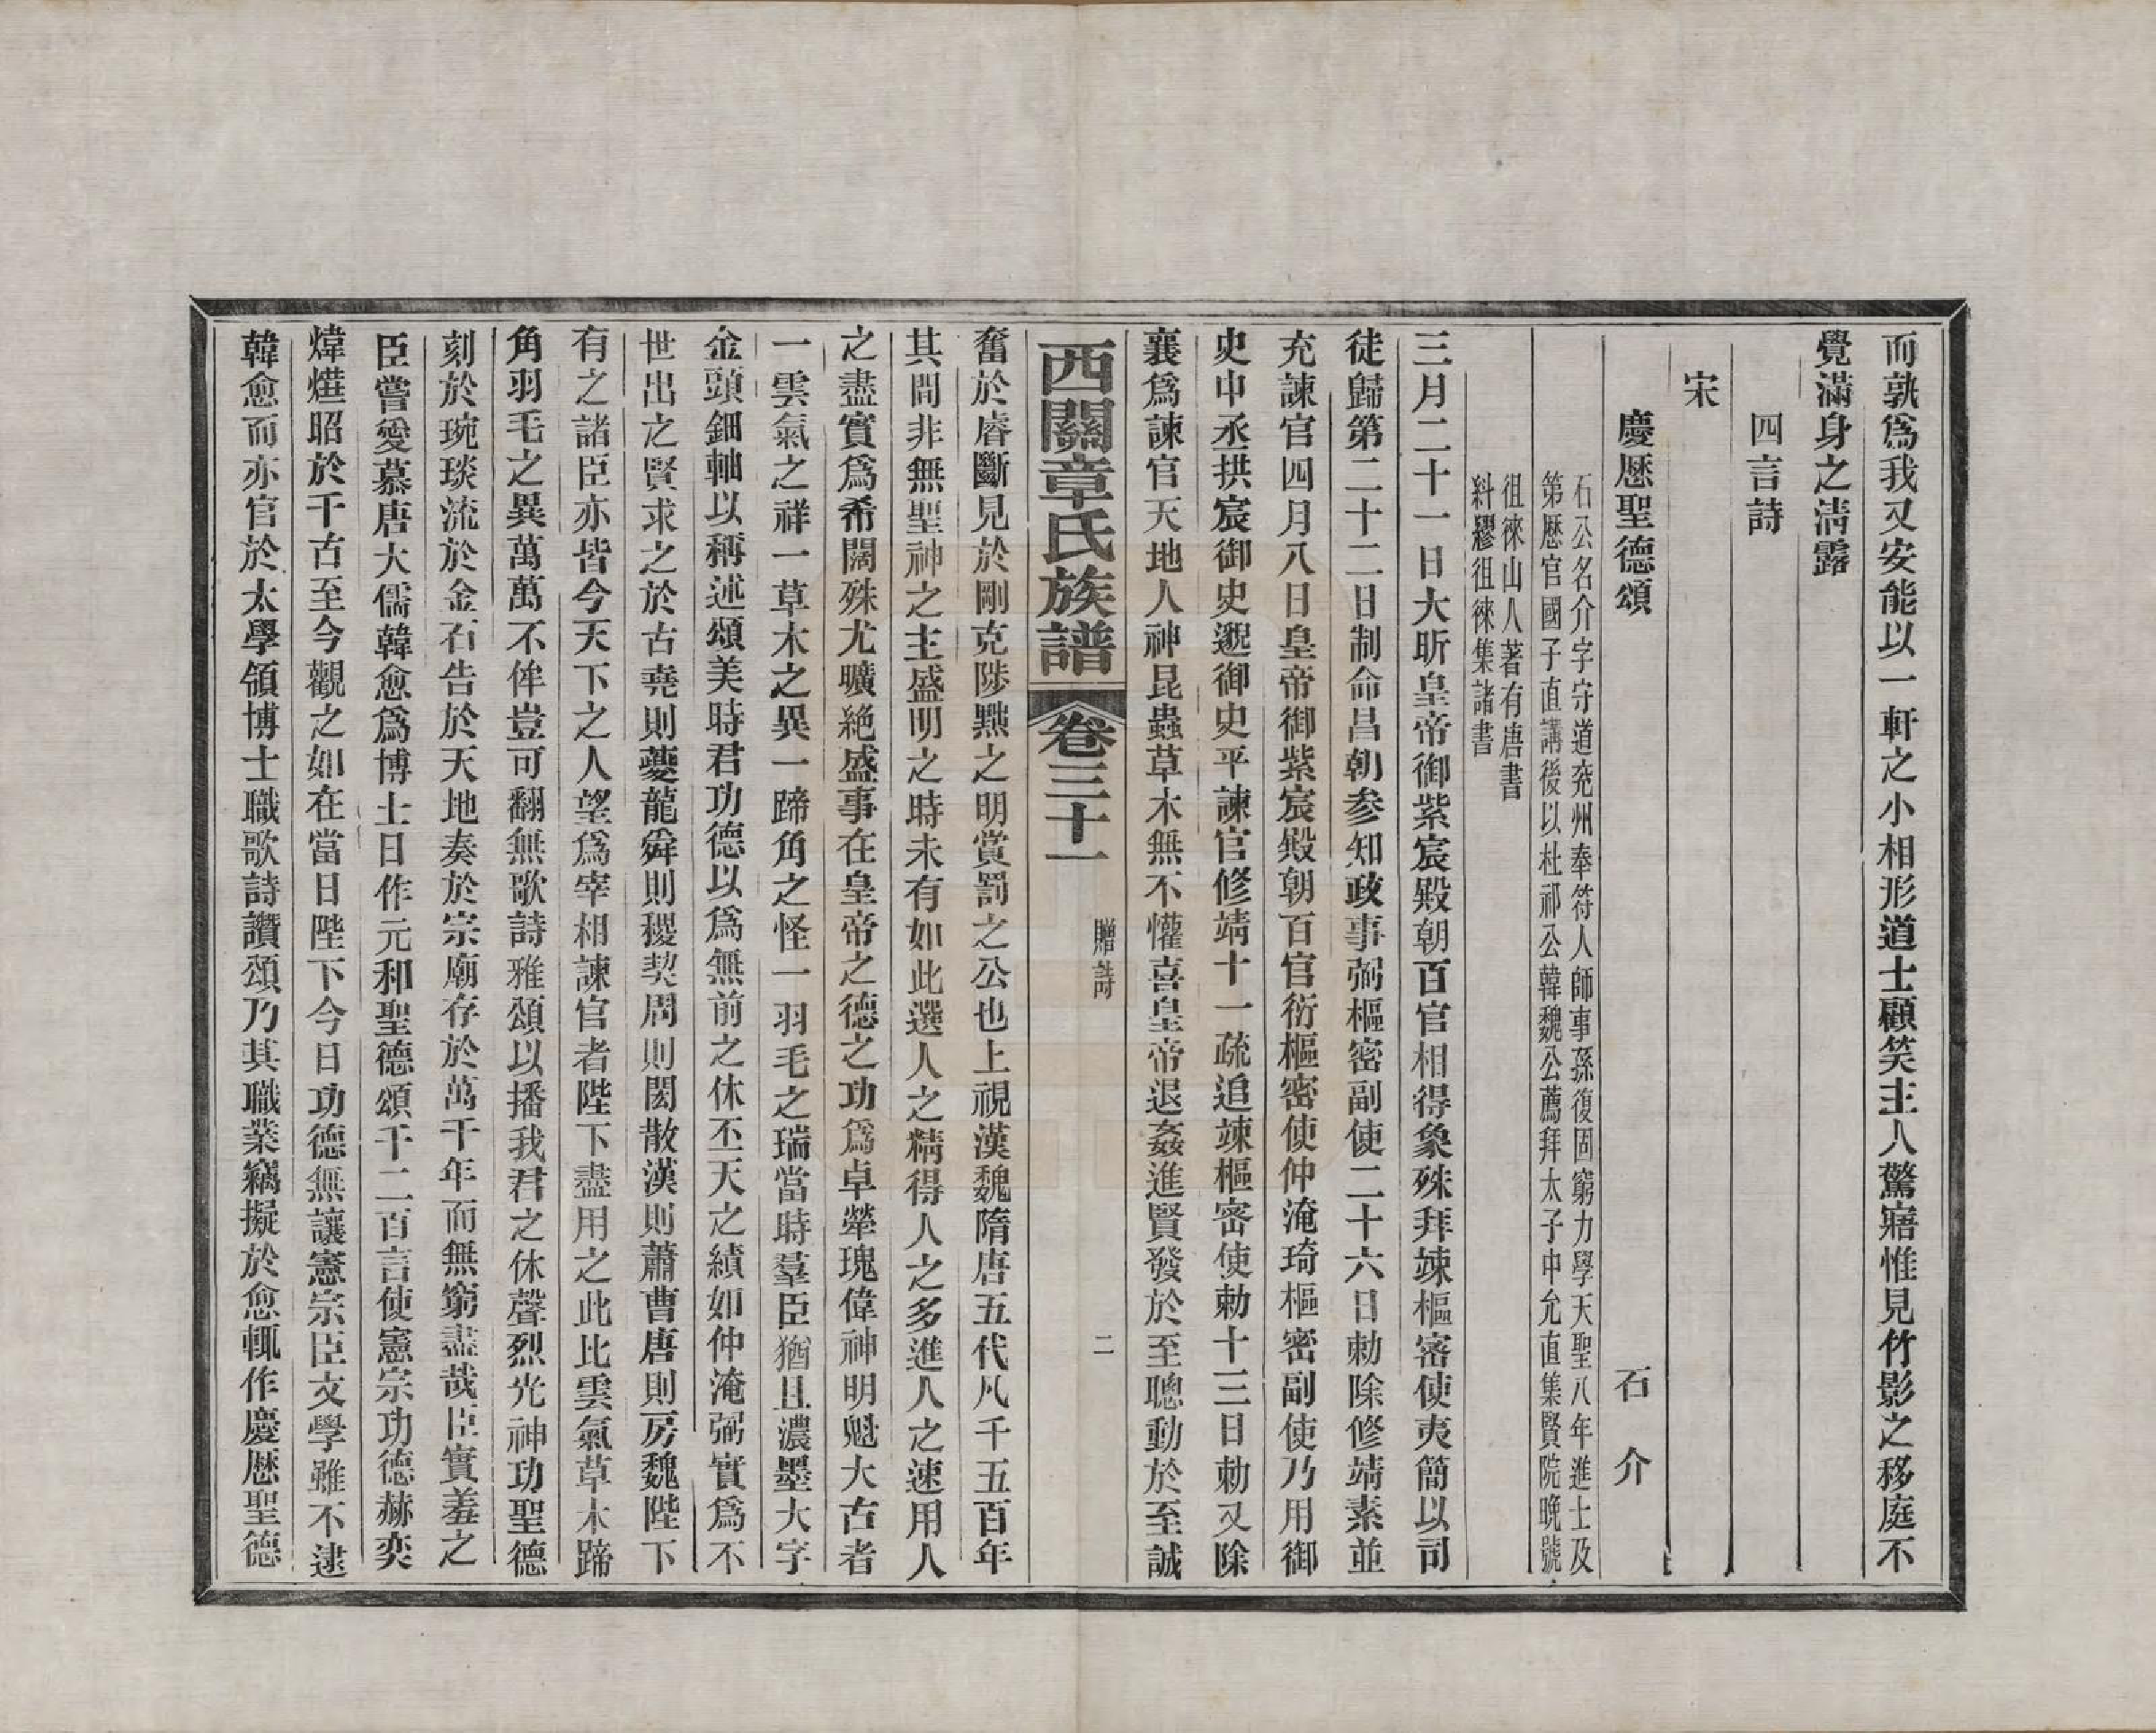 而孰爲我又安能以一軒之小相形道士顧笑主人驚寤惟見竹影之移庭不
覺滿身之清露
四言詩
宋
慶歷聖德頌 石介
石公名介字守道兗州奉符人師事孫復固窮力學天聖八年進士及
第歷官國子直講後以杜祁公韓魏公薦拜太子中允直集賢院晚號
徂徠山人著有唐書
糾繆徂徠集諸書
三月二十一日大昕皇帝御紫宸殿朝百官相得象殊拜竦樞密使夷簡以司
徒歸第二十二日制命昌朝參知政事弼樞密副使二十六日勅除修靖素並
充諫官四月八日皇帝御紫宸殿朝百官衍樞密使仲淹琦樞密副使乃用御
史中丞拱宸御史邈御史平諫官修靖十一疏追竦樞密使勅十三日勅又除
襄爲諫官天地人神昆蟲草木無不懽喜皇帝退姦進賢發於至聰動於至誠
西關章氏族譜 卷三十一 贈詩 二
奮於睿斷見於剛克陟黜之明賞罰之公也上視漢魏隋唐五代凡千五百年
其間非無聖神之主盛明之時未有如此選人之精得人之多進人之速用人
之盡實爲希闊殊尤曠絶盛事在皇帝之德之功爲卓犖瑰偉神明魁大古者
一雲氣之祥一草木之異一蹄角之怪一羽毛之瑞當時羣臣猶且濃墨大字
金頭鈿軸以稱述頌美時君功德以爲無前之休丕天之績如仲淹弼實爲不
世出之賢求之於古堯則夔龍舜則稷契周則閎散漢則蕭曹唐則房魏陛下
有之諸臣亦皆今天下之人望爲宰相諫官者陛下盡用之此比雲氣草木蹄
角羽毛之異萬萬不侔豈可翻無歌詩雅頌以播我君之休聲烈光神功聖德
刻於琬琰流於金石告於天地奏於宗廟存於萬千年而無窮盡哉臣實羞之
臣嘗愛慕唐大儒韓愈爲博士日作元和聖德頌千二百言使憲宗功德赫奕
煒燁昭於千古至今觀之如在當日陛下今日功德無讓憲宗臣文學雖不逮
韓愈而亦官於太學領博士職歌詩讚頌乃其職業竊擬於愈輒作慶歷聖德